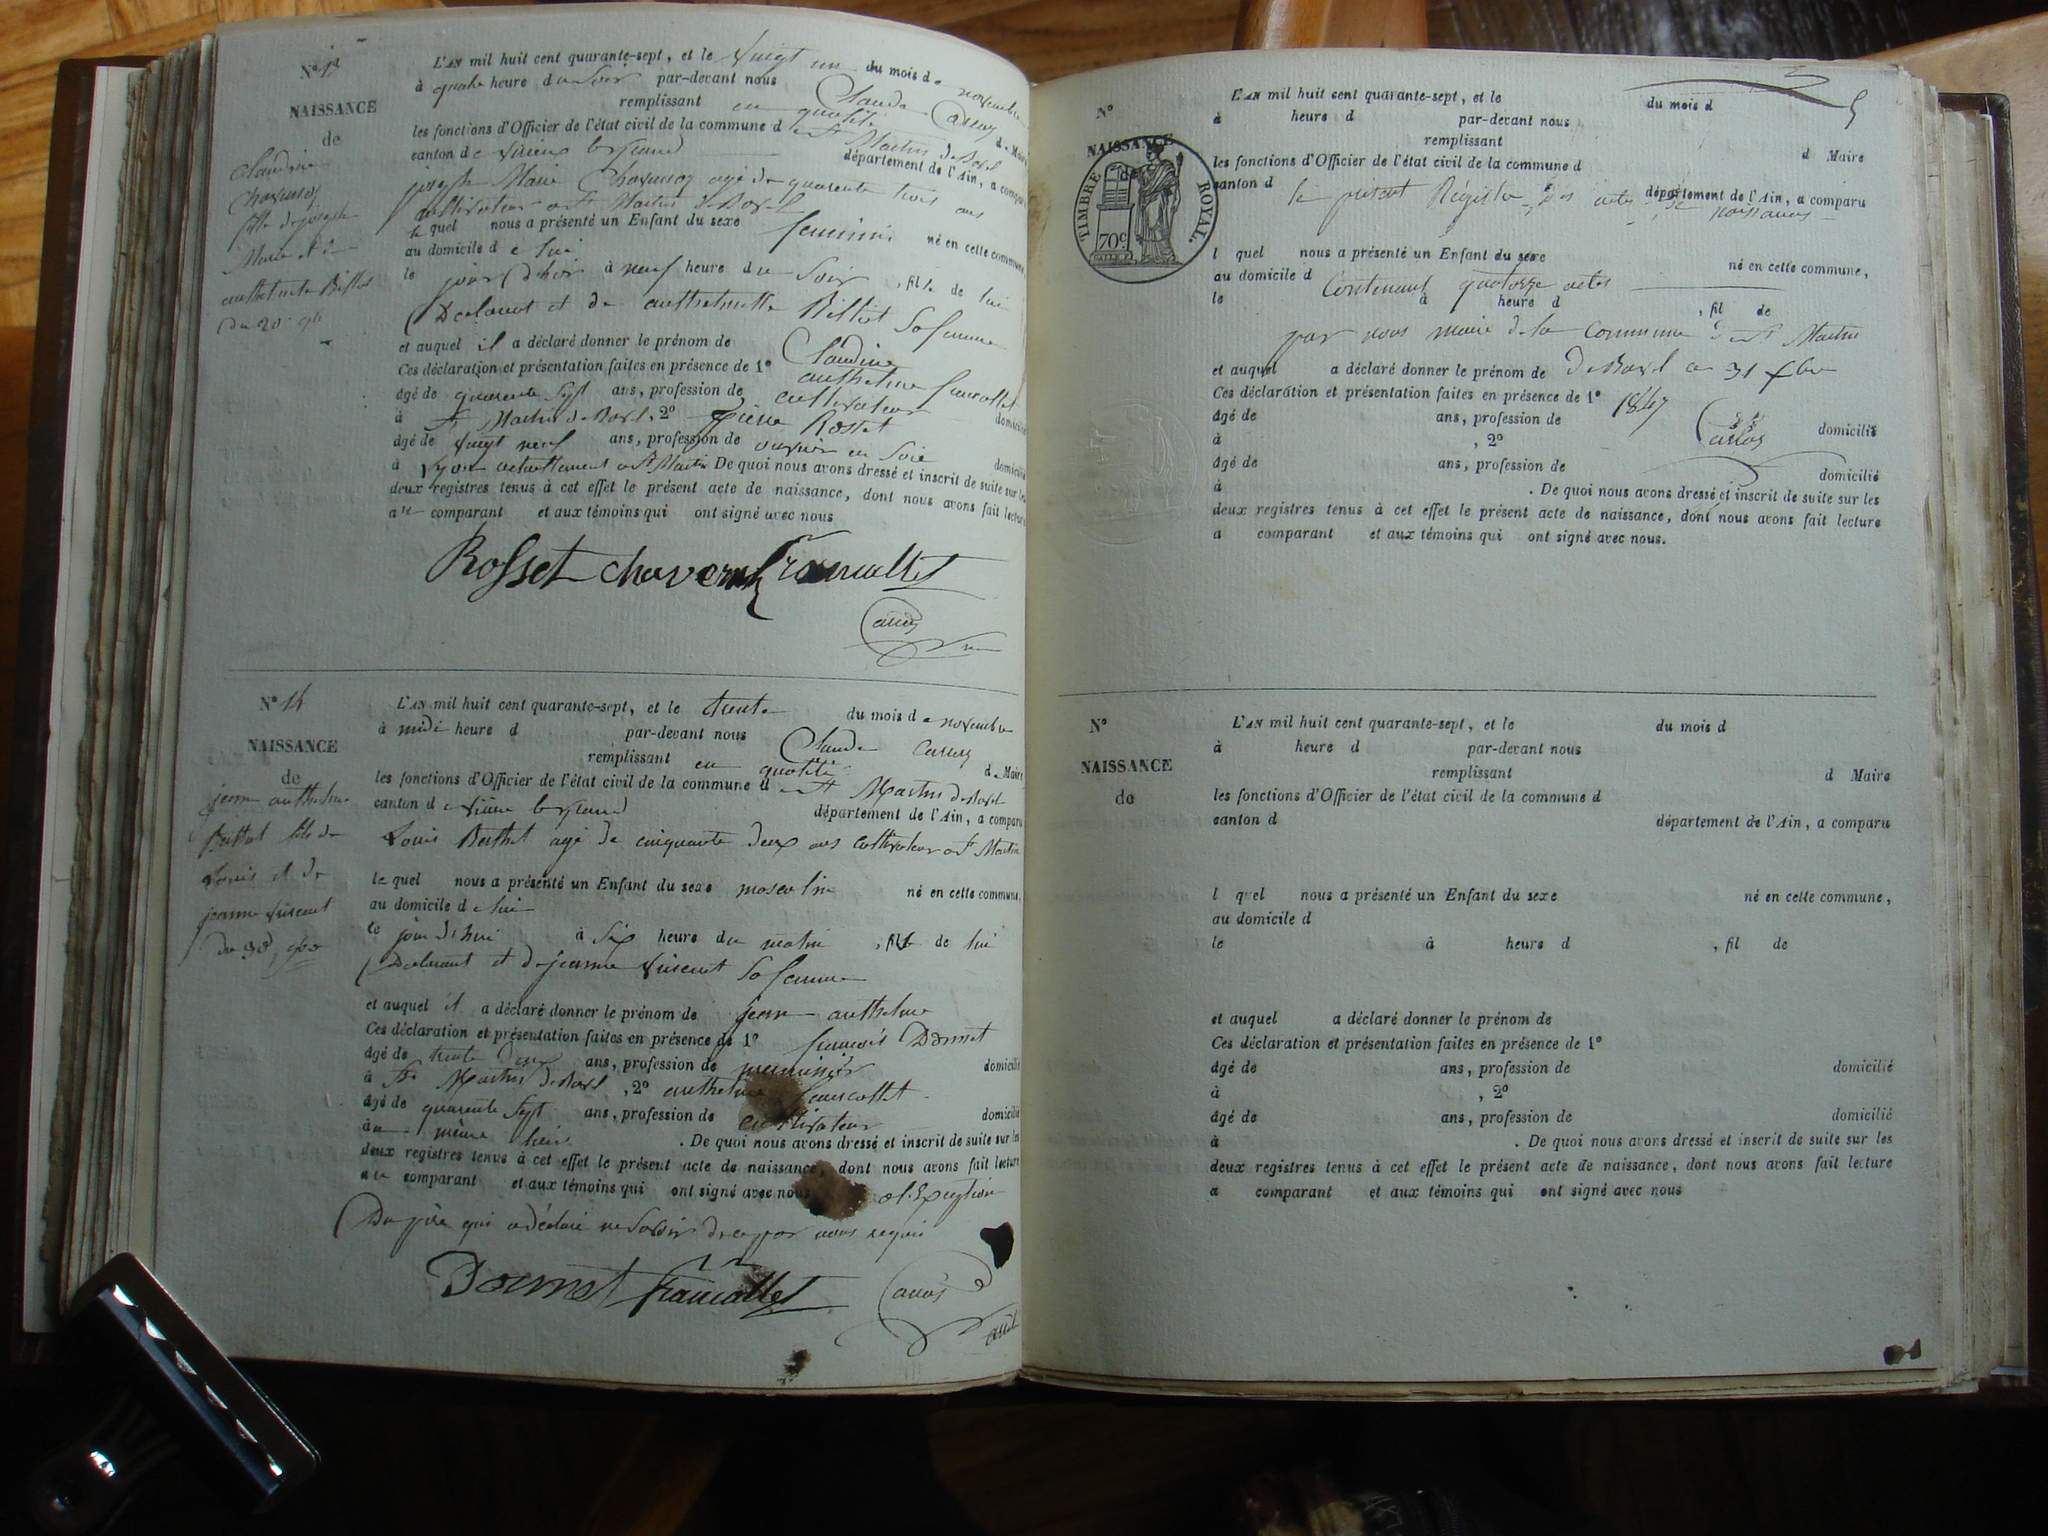 N°
NAISSANCE
de
Claudine
fille de joseph
Marie et d
L'AN mil huit cent quarante-sept, et le Vingt un du mois de novembre
à quatre heure du Soir par-devant nous Claude
remplissant en qualité de Maire
les fonctions d'Officier de l'état civil de la commune de St Martin de Bavel
canton de Virieu le grand département de l'Ain, a comparu
joseph Marie agé de quarante trois ans
cultivateur a St Martin de Bavel
le quel nous a présenté un Enfant du sexe feminin né en cette commune,
au domicile de lui
le jour d'hier à neuf heure du Soir , fille de lui
Declarant et de Billiet Sa femme
et auquel il a déclaré donner le prénom de Claudine
Ces déclaration et présentation faites en présence de 1° anthelme francallet
âgé de quarante Sept ans, profession de cultivateur domicilié
à St Martin de Bavel, 2° Pierre Rosset
âgé de vingt neuf ans, profession de ouvrier en Soie domicilié
à Lyon actuellement a St Martin De quoi nous avons dressé et inscrit de suite sur les
deux registres tenus à cet effet le présent acte de naissance, dont nous avons fait lecture
au comparant et aux témoins qui ont signé avec nous
Rosset francallet
N° 14
NAISSANCE
de
jean anthelme
Berthet fils de
Louis et de
jeanne vincent
du 30 9bre
L'AN mil huit cent quarante-sept, et le trente du mois de novembre
à midi heure d par-devant nous Claude
remplissant en qualité de Maire
les fonctions d'Officier de l'état civil de la commune de St Martin de Bavel
canton de Virieu le grand département de l'Ain, a comparu
Louis Berthet agé de cinquante deux ans cultivateur a St Martin
le quel nous a présenté un Enfant du sexe masculin né en cette commune,
au domicile de lui
le jour d'hui à Six heure du matin , fils de lui
Declarant et de jeanne vincent Sa femme
et auquel il a déclaré donner le prénom de jean anthelme
Ces déclaration et présentation faites en présence de 1° francois Dornet
âgé de trente deux ans, profession de menuisier domicilié
à St Martin de Bavel, 2° anthelme francallet
âgé de quarante Sept ans, profession de cultivateur domicilié
au même lieu . De quoi nous avons dressé et inscrit de suite sur les
deux registres tenus à cet effet le présent acte de naissance, dont nous avons fait lecture
au comparant et aux témoins qui ont signé avec nous a l'Exception
Du père qui a déclaré ne Savoir de ce par nous requis
Dornet francallet
5
N°
NAISSANCE
de
TIMBRE ROYAL.
70c
L'AN mil huit cent quarante-sept, et le du mois d
à heure d par-devant nous
remplissant d Maire
les fonctions d'Officier de l'état civil de la commune d
canton d département de l'Ain, a comparu
le present Régistre des actes de naissances
l quel nous a présenté un Enfant du sexe né en cette commune,
au domicile d Contenant quatorze actes
le à heure d , fil de
par nous maire de la Commune de St Martin
et auquel a déclaré donner le prénom de de Bavel ce 31 Xbre
Ces déclaration et présentation faites en présence de 1° 1847
âgé de ans, profession de domicilié
à , 2°
âgé de ans, profession de domicilié
à . De quoi nous avons dressé et inscrit de suite sur les
deux registres tenus à cet effet le présent acte de naissance, dont nous avons fait lecture
a comparant et aux témoins qui ont signé avec nous.
N°
NAISSANCE
de
L'AN mil huit cent quarante-sept, et le du mois d
à heure d par-devant nous
remplissant d Maire
les fonctions d'Officier de l'état civil de la commune d
canton d département de l'Ain, a comparu
l quel nous a présenté un Enfant du sexe né en cette commune,
au domicile d
le à heure d , fil de
et auquel a déclaré donner le prénom de
Ces déclaration et présentation faites en présence de 1°
âgé de ans, profession de domicilié
à , 2°
âgé de ans, profession de domicilié
à . De quoi nous avons dressé et inscrit de suite sur les
deux registres tenus à cet effet le présent acte de naissance, dont nous avons fait lecture
a comparant et aux témoins qui ont signé avec nous